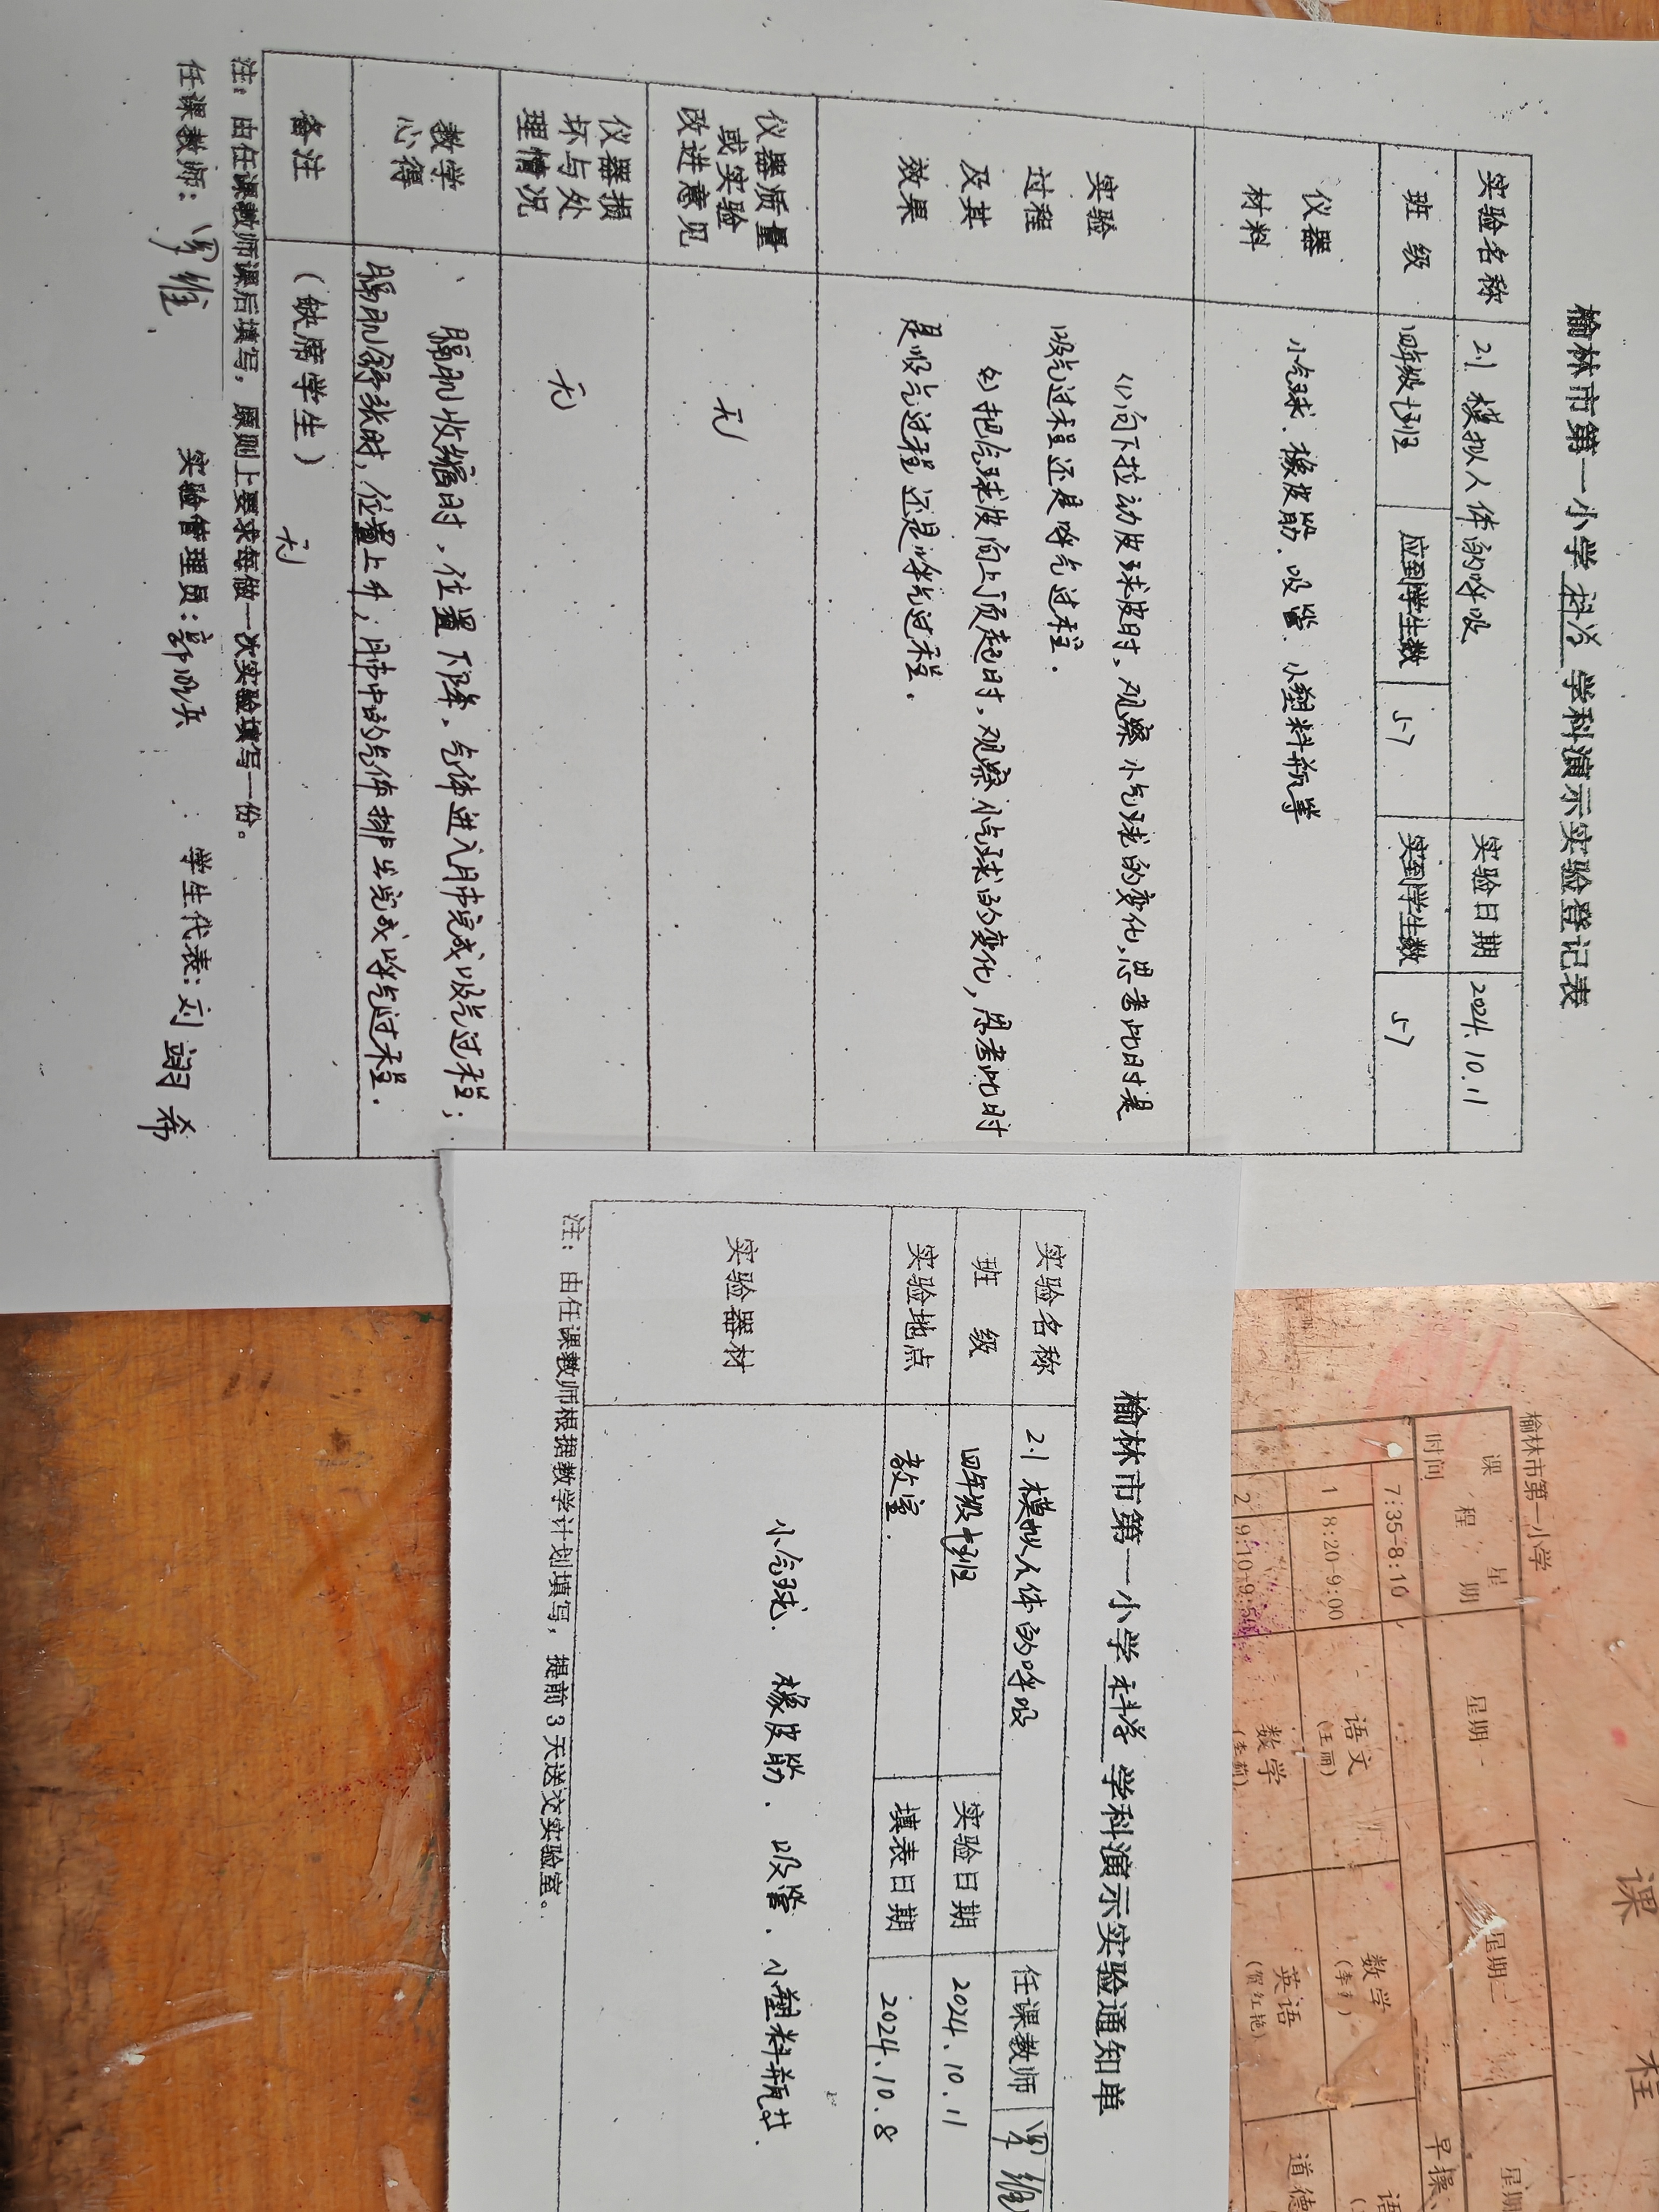 榆林市第一小学 科学 学科演示实验登记表
实验名称 2.1 模拟人体的呼吸 实验日期 2024.10.11
班 级 四年级十班 应到学生数 57 实到学生数 57
仪器
材料
小气球、橡皮筋、吸管、小塑料瓶等
实验
过程
及其
效果
(1)向下拉动皮球皮时,观察小气球的变化,思考此时是
吸气过程还是呼气过程.
(2)把气球皮向上顶起时,观察小气球的变化,思考此时
是吸气过程还是呼气过程.
仪器质量
或实验
改进意见
无
仪器损
坏与处
理情况
无
教学
心得
膈肌收缩时,位置下降,气体进入肺完成吸气过程;
膈肌舒张时,位置上升,肺中的气体排出完成呼气过程.
备注 (缺席学生) 无
注:由任课教师课后填写,原则上要求每做一次实验填写一份。
任课教师: 维 实验管理员: 学生代表:刘翊希
榆林市第一小学 科学 学科演示实验通知单
实验名称 2.1 模拟人体的呼吸 任课教师 维
班 级 四年级十班 实验日期 2024.10.11
实验地点 教室. 填表日期 2024.10.8
实验器材
小气球、橡皮筋、吸管、小塑料瓶等.
注:由任课教师根据教学计划填写,提前3天送交实验室。
课 程
榆林市第一小学
星期
课程
时间
星期一 星期二 星期
7:35-8:10 早操
1 8:20-9:00 语文 数学 语
(汪丽)
2 9:10-9:50 数学 英语 道德
(贺红艳)